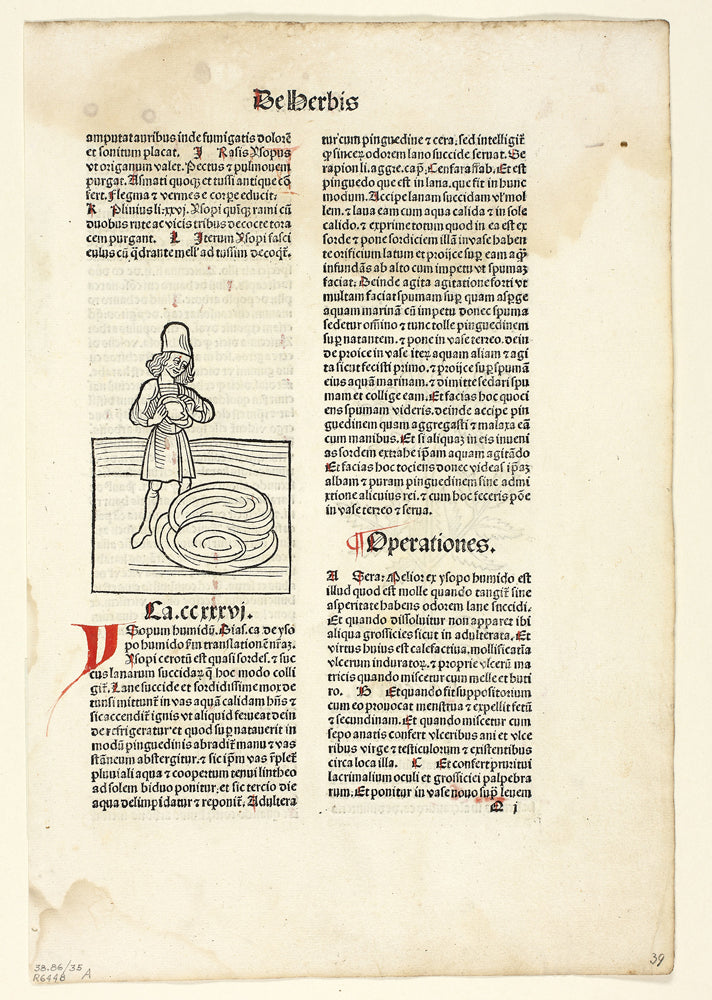 De Herbis
amputat auribus inde fumigatis dolorē
et sonitum placat. I Rasis Ysopus
vt origanum valet. Pectus & pulmonem
purgat. Asmati quoqꝫ et tussi antique cō
fert. Flegma & vermes e corpe educit.
K Plinius li. xxvj. Ysopi quīqꝫ rami cū
duobus rute ac vicis tribus decocte tora
cem purgant. L Iterum Ysopi fasci
culus cū q̄drante mell' ad tussim decoqr̄.
Ca. ccxxxvj.
YSopum humidū. Dias. ca. de yso
po humido ſm translationem nr̄aꝫ.
Ysopi cerotū est quasi sordes. & suc
cus lanarum succidaꝝ q̄ hoc modo colli
git̄. Lane succide et sordidissime mox de
tunsi mittunt̄ in vas aquā calidam hn̄s &
sic accendit̄ ignis vt aliquid ferueat dein
de refrigeratur et quod sup̄ natauerit in
modū pinguedinis abradit̄ manu & vas
stāneum abstergitur. & sic ip̄m vas r̄plet̄
pluuiali aqua & coopertum tenui lintheo
ad solem biduo ponitur. et sic tercio die
aqua delimpidatur & reponit̄. Adultera
tur cum pinguedine & cera. sed intelligit̄
qꝫ sinceꝝ odorem lano succide seruat. Se
rapion li. aggre. cap̄. Cenfaraffab. Et est
pinguedo que est in lana. que fit in hunc
modum. Accipe lanam succidam vl' mol
lem. & laua eam cum aqua calida & in sole
calido. & exprime totum quod in ea est ex
sorde & pone sordiciem illā in vase haben
te orificium latum et proijce sup̄ eam aqꝫ
infundās ab alto cum impetu vt spumaꝫ
faciat. Deinde agita agitatione forti vt
multam faciat spumam sup̄ quam asp̄ge
aquam marinā cū impetu donec spuma
sedetur oīnino & tunc tolle pinguedinem
sup̄natantem. & pone in vase terreo. dein
de proice in vase iteꝝ aquam aliam & agi
ta sicut fecisti primo. & proijce sup̄ spumā
eius aquā marinam. & dimitte sedari spu
mam et collige eam. Et facias hoc quoci
ens spumam videris. deinde accipe pin
guedinem quam aggregasti & malaxa eā
cum manibus. Et si aliquaꝫ in eis inueni
as sordem extrahe ip̄am aquam agitādo
Et facias hoc tociens donec videas ip̄aꝫ
albam & puram pinguedinem sine admi
xtione alicuius rei. & cum hoc feceris pōe
in vase terreo & serua.
¶Operationes.
A Sera. Melior ex ysopo humido est
illud quod est molle quando tangit̄ sine
asperitate habens odorem lane succidi.
Et quando dissoluitur non apparet ibi
aliqua grossicies sicut in adulterata. Et
virtus huius est calefactiua. mollificatiua
vlcerum induratoꝝ. & proprie vlcerū ma
tricis quando miscetur cum melle et buti
ro. B Et quando fit suppositorium
cum eo prouocat menstrua & expellit fetū
& secundinam. Et quando miscetur cum
sepo anatis confert vlceribus ani et vlce
ribus virge & testiculorum & existentibus
circa loca illa. C Et confert pruritui
lacrimalium oculi et grossiciei palpebra
rum. Et ponitur in vase nouo sup̄ leuem
Q j
38.86/35
R6448 A
39